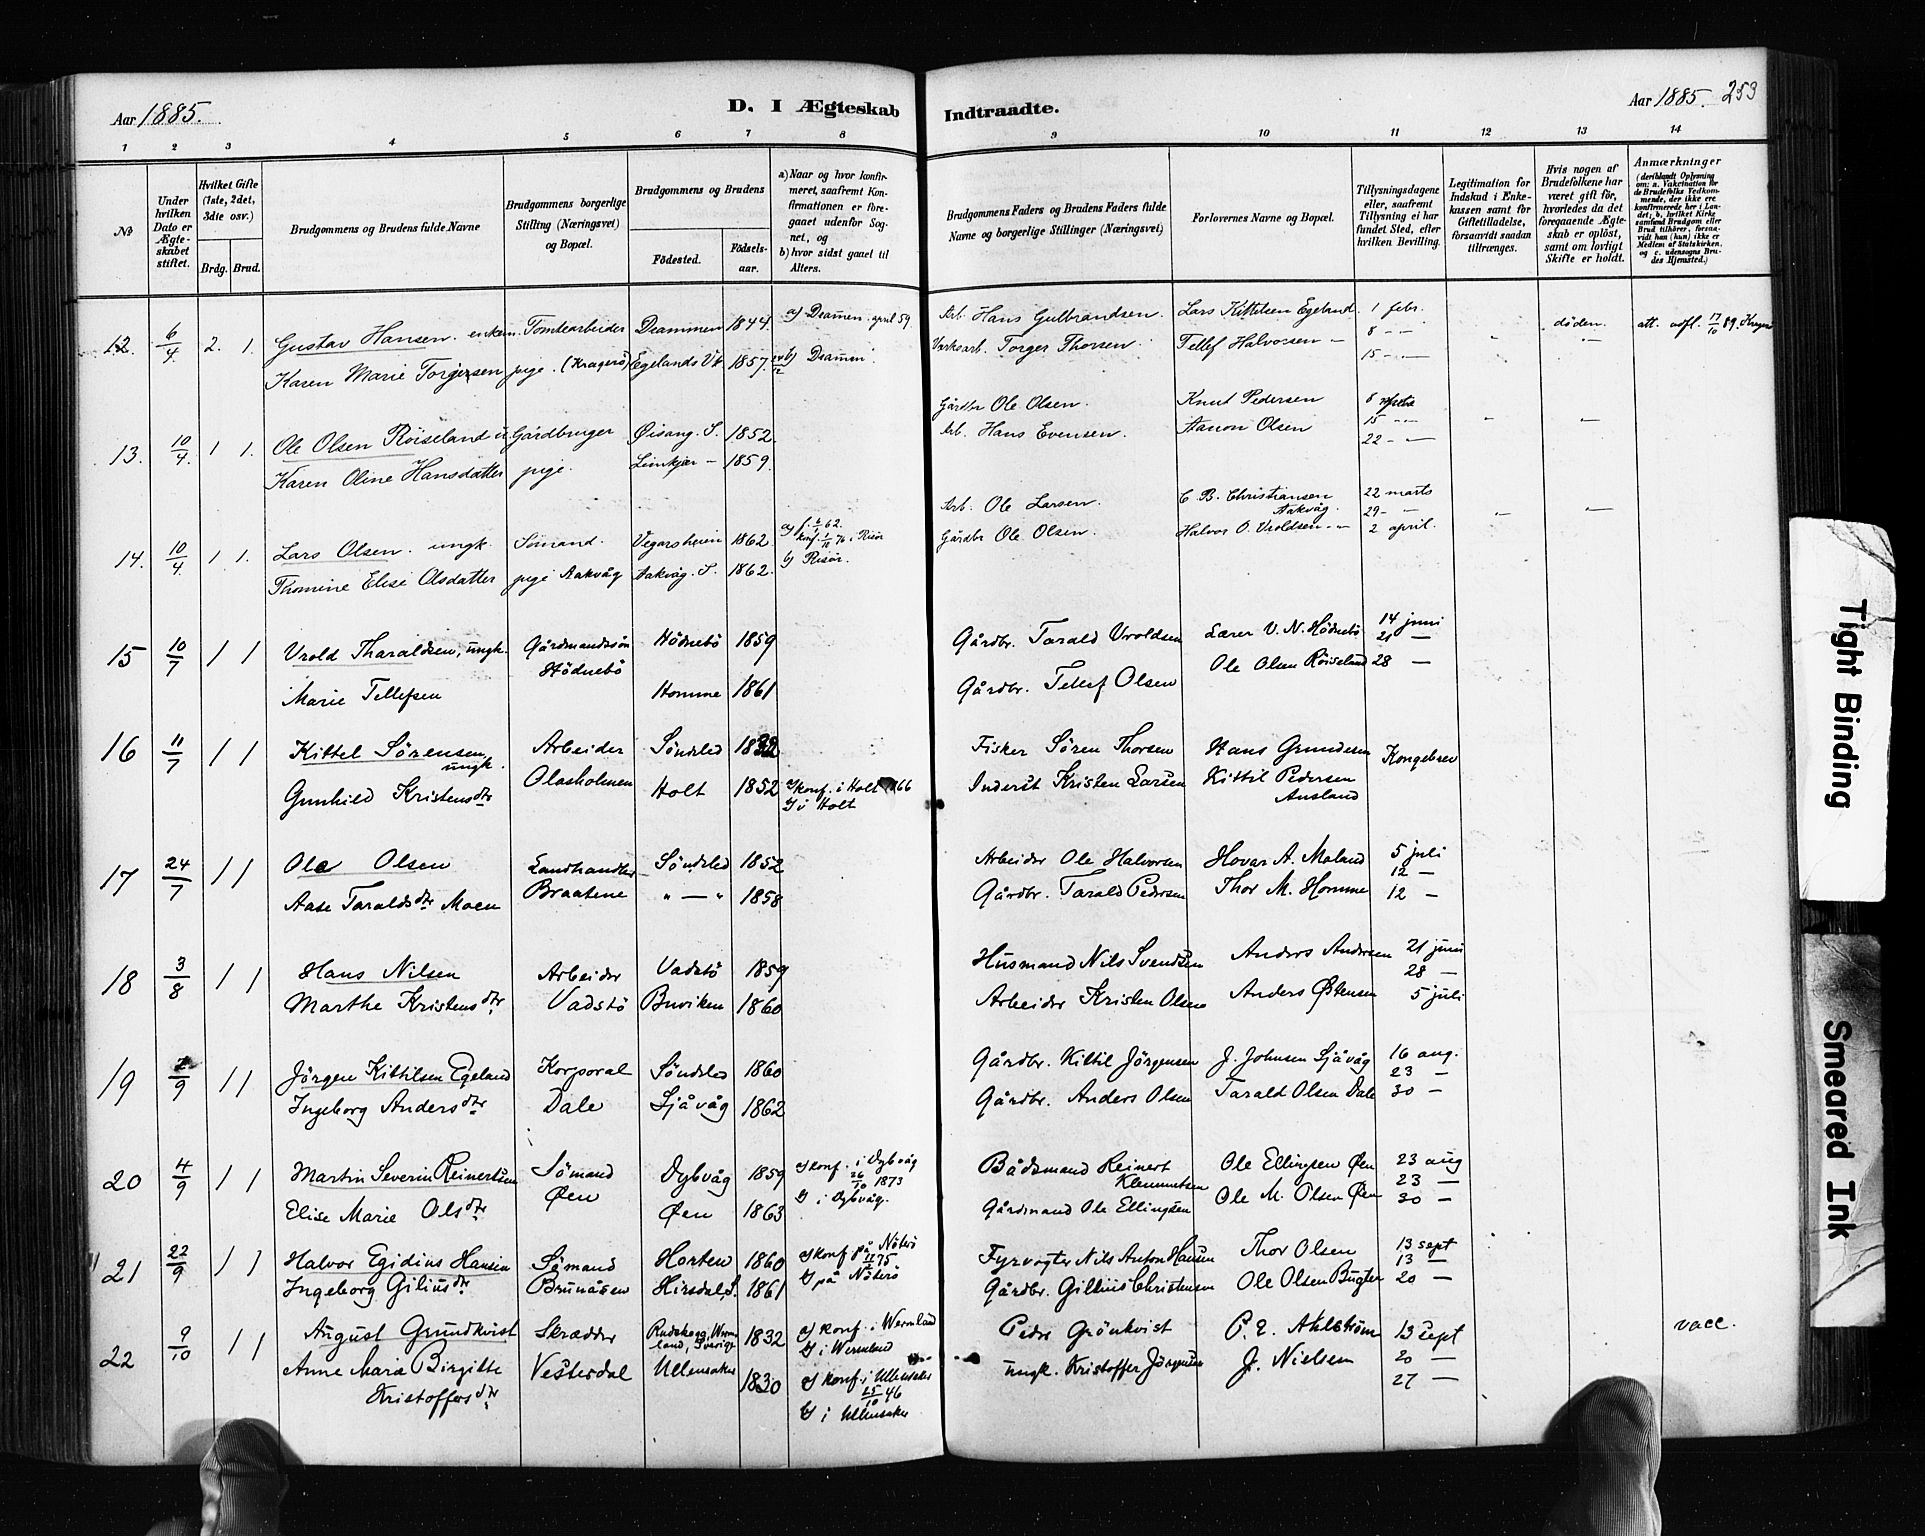 Aar 1885.
D. I Ægteskab
Indtraadte.
Aar 1885. 253
1 2 3 4 5 6 7 8 9 10 11 12 13 14
No
Under hvilken Dato er Ægteskabet stiftet.
Hvilket Gifte (1ste, 2det, 3die osv.)
Brdg. Brud.
Brudgommens og Brudens fulde Navne
Brudgommens borgerlige Stilling (Næringsvei) og Bopæl.
Brudgommens og Brudens
Födested.
Födselsaar.
a) Naar og hvor konfirmeret, saafremt Konfirmationen er foregaaet udenfor Sognet, og
b) hvor sidst gaaet til Alters.
Brudgommens Faders og Brudens Faders fulde Navne og borgerlige Stillinger (Næringsvei)
Forlovernes Navne og Bopæl.
Tillysningsdagene eller, saafremt Tillysning ei har fundet Sted, efter hvilken Bevilling.
Legitimation for Indskud i Enkekassen samt for Giftetilladelse, forsaavidt saadan tiltrænges.
Hvis nogen af Brudefolkene har været gift før, hvorledes da det foregaaende Ægteskab er oplöst, samt om lovligt Skifte er holdt.
Anmærkninger
(deriblandt Oplysning om: a. Vakcination for de Brudefolks Vedkommende, der ikke ere konfirmerede her i Landet; b. hvilket Kirkesamfund Brudgom eller Brud tilhörer, forsaavidt han (hun) ikke er Medlem af Statskirken, og c. udensogns Brudes Hjemsted.)
12. 6/4. 2. 1. Gustav Hansen. enkem. Tomtearbeider Drammen 1844. a) Dramen. april 59. Arb. Hans Gulbrandsen. Lars Kittilsen Egeland. 1 febr. døden. att. udfl. 17/10 89.
Karen Marie Torgersen pige. (Kragerö) Egelands Vk 1857. b) Dramen Værksarb. Torger Thorsen. Tellef Halvorsen 8 - 15 -
13. 10/4. 1 1. Ole Olsen Röiseland Gårdbruger Öisang. S. 1852. Gårdbr Ole Olsen. Knut Pedersen 8 marts
Karen Oline Hansdatter pige. Limkjær - 1859. Arb. Hans Evensen. Aanon Olsen 15 - 22 -
14. 10/4. 1 1. Lars Olsen. ungk. Sömand. Vegarsheien 1862. Risör Arb. Ole Larsen. C. B. Christiansen Aakvåg. 22 marts 29 -
Thomine Elise Olsdatter pige Aakvåg Aakvåg. S. 1862. b) Risør. Gårdbr Ole Olsen. Halvor O. Vroldsen 2 april.
15 10/7 1 1 Vrold Tharaldsen, ungk. Gårdmandssön Hödnebö 1859 Gårdbr. Tarald Vroldsen Lærer V. N. Hödnebö 14 juni 21 -
Marie Tellefsen Hödnebö Homme 1861 Gårdbr. Tellef Olsen Ole Olsen Röiseland 28 -
16 11/7 1 1 Kittel Sörensen, ungk. Arbeider Söndeled Fisker Sören Thorsen Hans Gundersen Kongebrev
Gunhild Kristensdtr Olasholmen Holt 1852 a) konf. i Holt 1866 b) i Holt Inderst Kristen Larsen Kittil Pedersen Ausland
17 24/7 1 1 Ole Olsen Landhandler Söndeled 1852 Arbeider Ole Halvorsen Hovar A. Moland 5 juli 12 -
Aase Taraldsdtr Moen Braatene " — " 1858 Gårdbr. Tarald Pedersen Thor M. Homme 12 -
18 3/8 1 1 Hans Nilsen Arbeider Vadstö 1859 Husmand Nils Svendsen Anders Andersen 21 juni 28 -
Marthe Kristensdtr Vadstö Buviken 1860 Arbeider Kristen Olsen Anders Östensen 5 juli
19 1 1 Jörgen Kittilsen Egeland Korporal Söndeled 1860 Gårdbr. Kittil Jörgensen J. Johnsen Sjåvåg 16 aug. 23 -
Ingeborg Andersdtr Dale Sjåvåg 1862 Gårdbr. Anders Olsen Tarald Olsen Dale 30 -
20 4/9 1 1 Martin Severin Reinertsen Sömand Dybvåg 1859 a) konf. i Dybvåg 26/10 1873 Bådsmand Reinert Klemmetsen Ole Ellingsen Öen 23 aug 23 -
Elise Marie Olsdtr Öen Öen 1863 b) i Dybvåg. Gårdmand Ole Ellingsen Ole M. Olsen Öen 30 -
21 22/9 1 1 Halvor Egidius Hansen Sömand Horten 1860 a) konf. på Nöterö 75 Fyrvogter Nils Anton Hansen Thor Olsen 13 sept 13 -
Ingeborg Giliusdtr Brunåsen Hirsdal, S. 1861 b) på Nöterö Gårdbr. Gillius Christensen Ole Olsen Bugten 20 -
22 9/10 1 1 August Grundkvist Skrædder Wermland, Sverige 1832 a) konf. i Wermland b) i Wermland Peder Grönkvist P. E. Ahlström 13 sept vacc.
Anne Maria Birgitte Kristoffersdtr Vesterdal Ullensaker 1830 a) konf. i Ullensaker 25/10 46 b) i Ullensaker ungk. Kristoffer Jörgensen J. Nielsen 20 - 27 -
Tight Binding
Smeared Ink